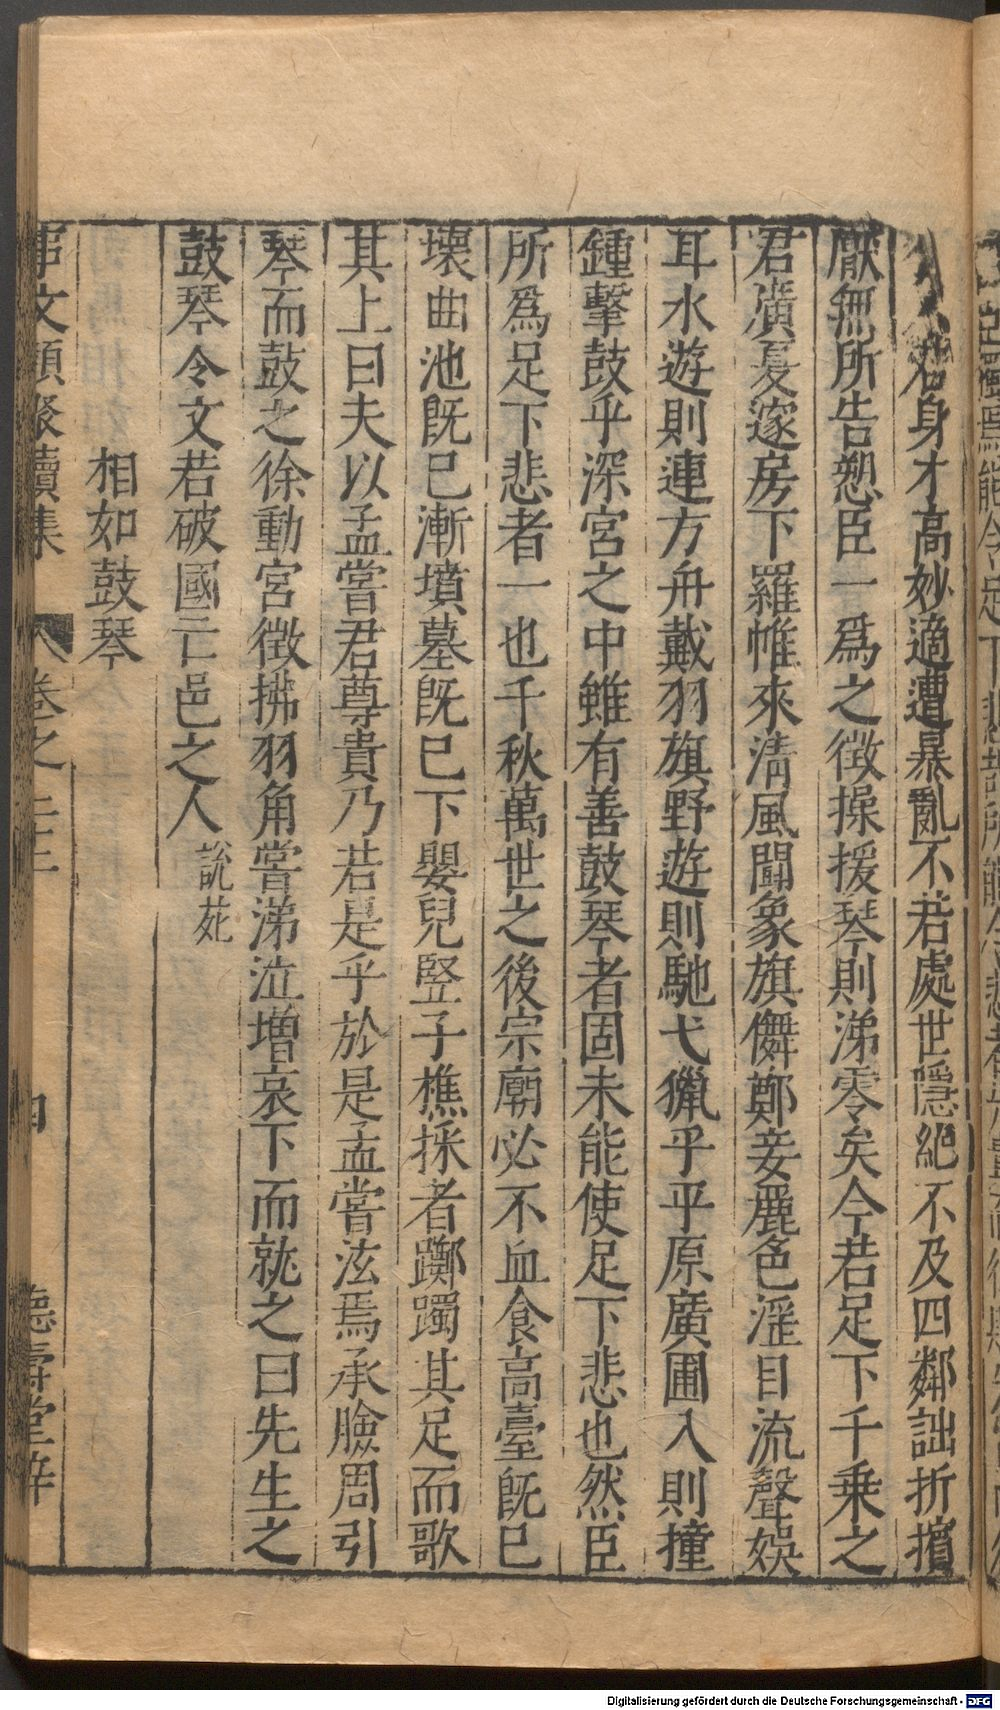 若身才高妙適遭暴亂不若處世隱絕不及四鄰詘折擯
厭無所告愬臣一爲之徴操援琴則涕零矣今若足下千乗之
君廣夏邃房下羅帷來淸風鬪象旗儛鄭妾麗色滛目流聲娛
耳水遊則連方舟戴羽旗野遊則馳弋獵乎平原廣圃入則撞
鍾擊鼓乎深宮之中雖有善鼓琴者固未能使足下悲也然臣
所爲足下悲者一也千秋萬世之後宗廟必不血食高臺旣已
壞曲池旣已漸墳墓旣已下嬰兒竪子樵採者躑躅其足而歌
其上曰夫以孟嘗君尊貴乃若是乎於是孟嘗泫焉承臉周引
琴而鼓之徐動宮徴拂羽角嘗涕泣增哀下而就之曰先生之
鼓琴令文若破國亡邑之人 說苑
相如鼓琴
事文類聚續集 卷之二十三 四 德壽堂梓
Digitalisierung gefördert durch die Deutsche Forschungsgemeinschaft - DFG